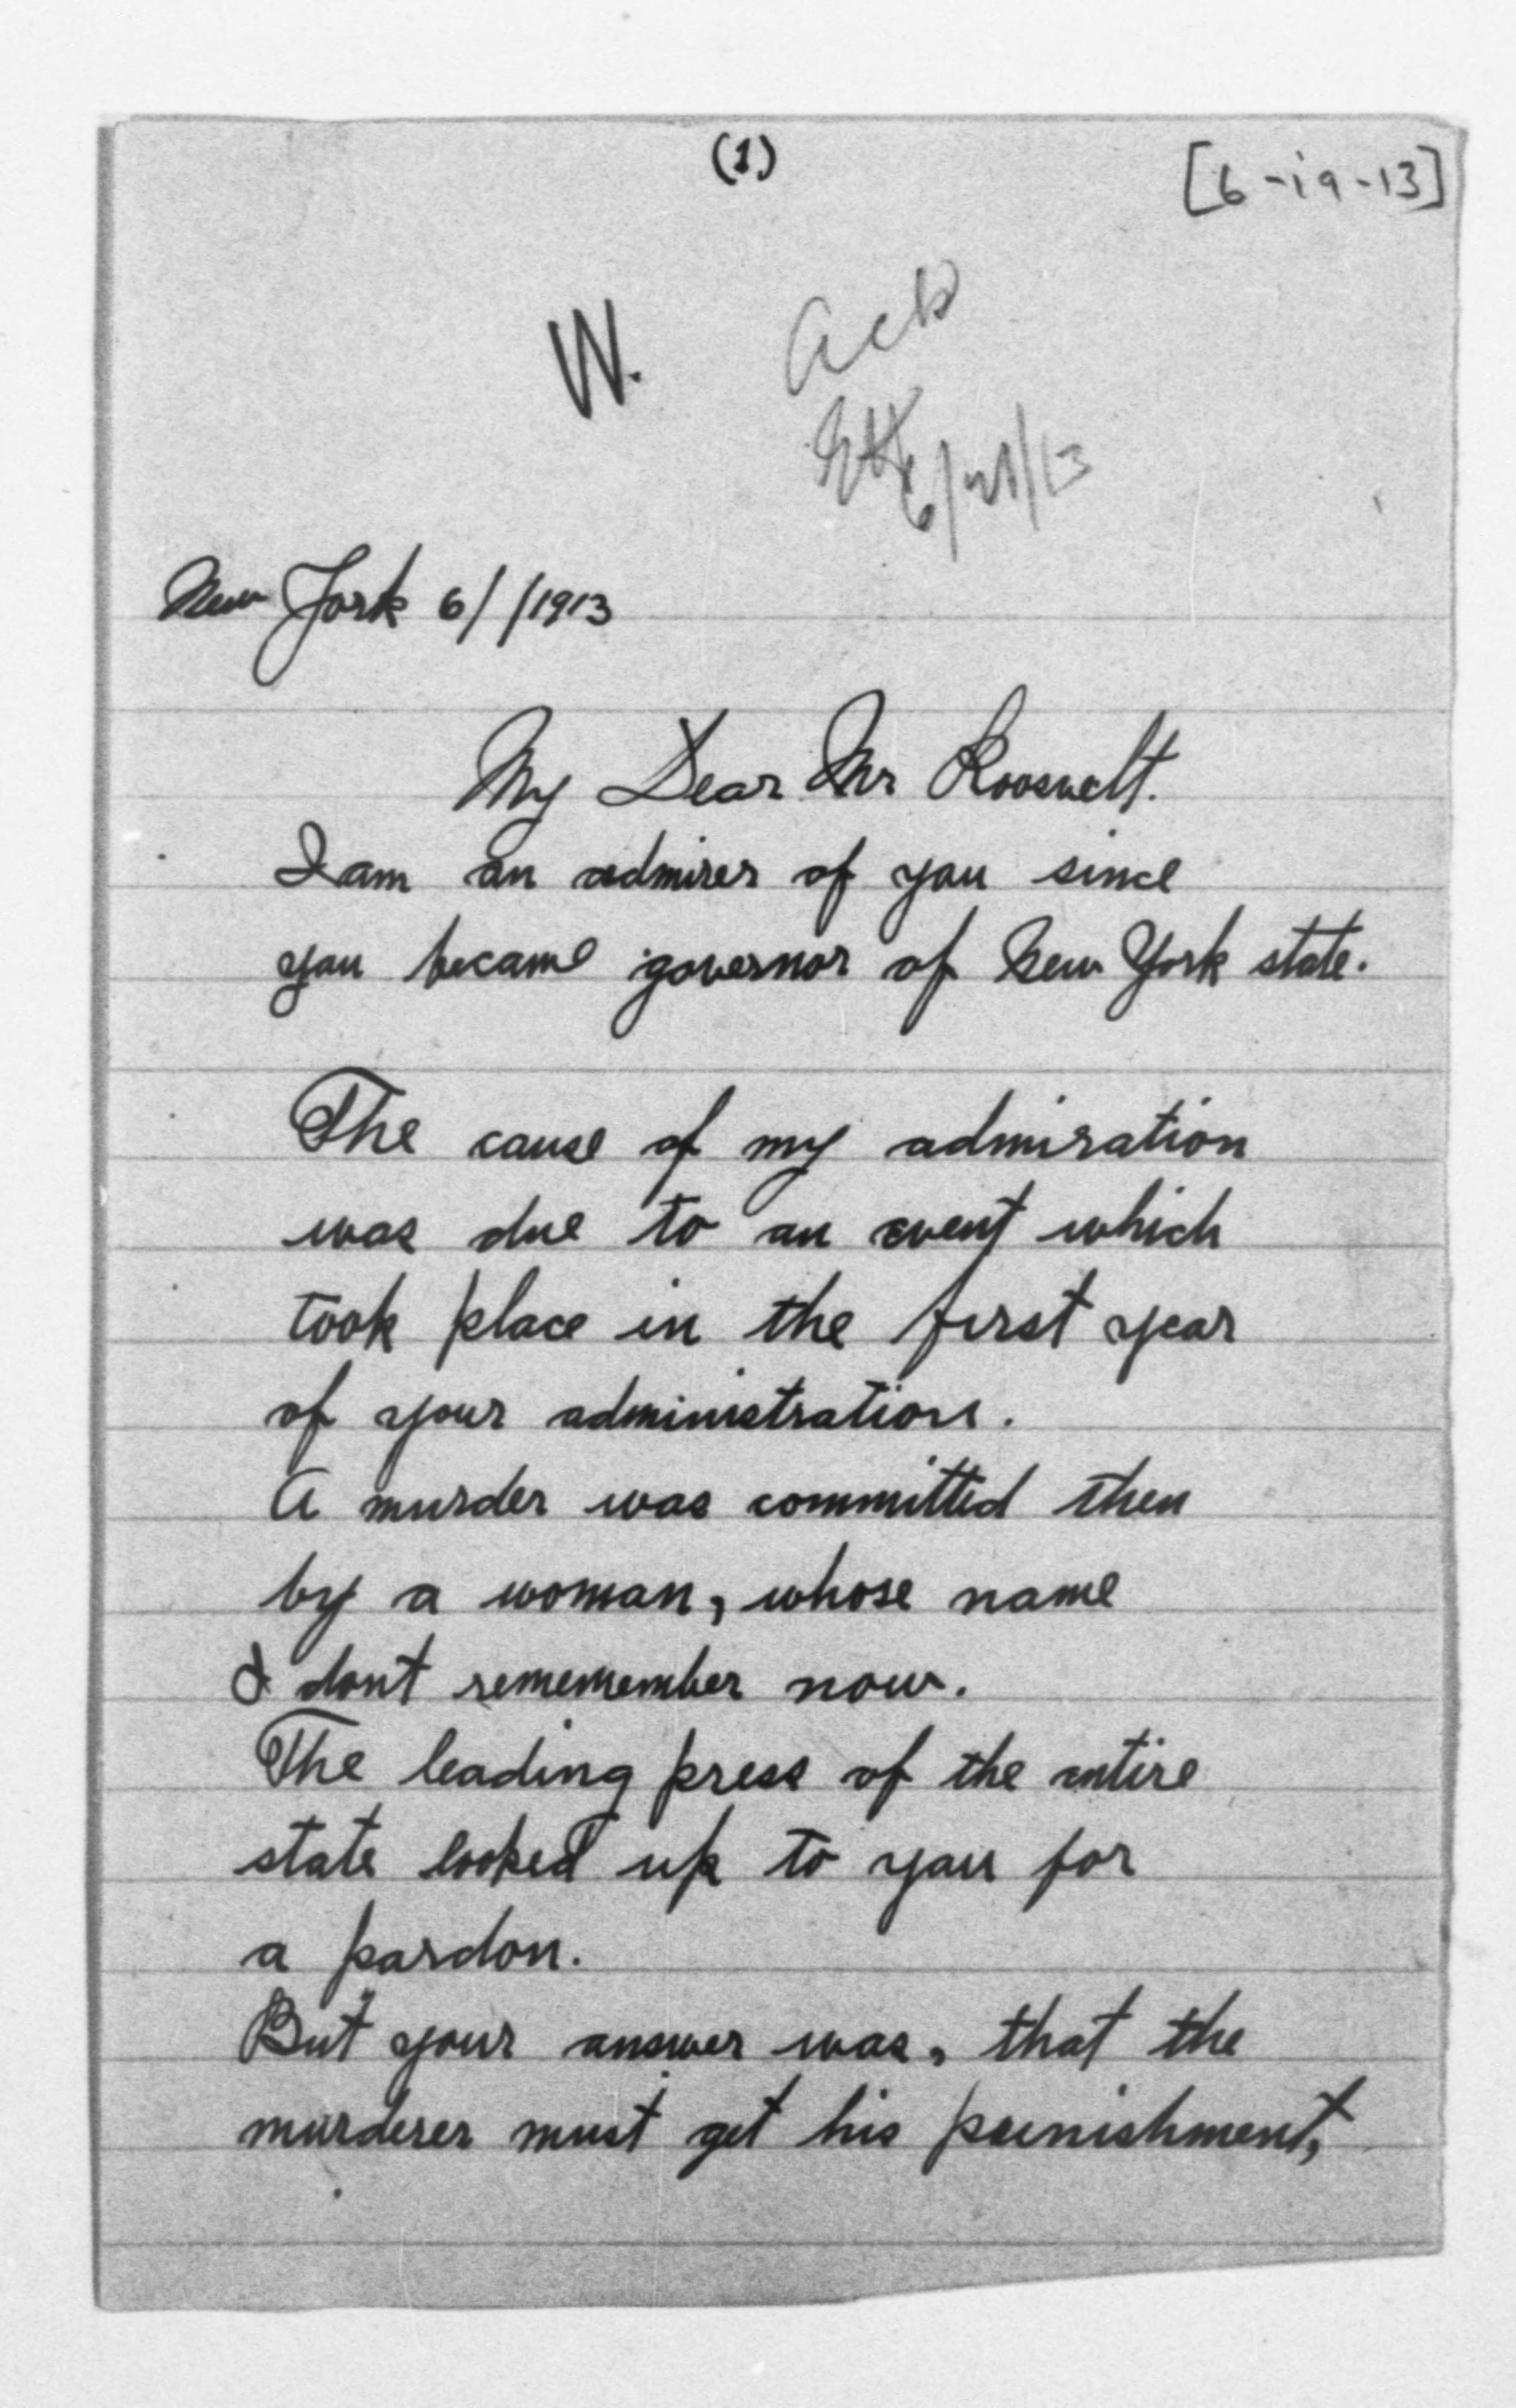 (1)
[6-19-13]
W.
Ack
6/21/13
New York 6/ /1913
My Dear Mr Roosevelt.
I am an admirer of you since
you became governor of New York state.
The cause of my admiration
was due to an event which
took place in the first year
of your administration.
A murder was committed then
by a woman, whose name
I dont rememember now.
The leading press of the entire
state looked up to you for
a pardon.
But your answer was, that the
murderer must get his punishment,